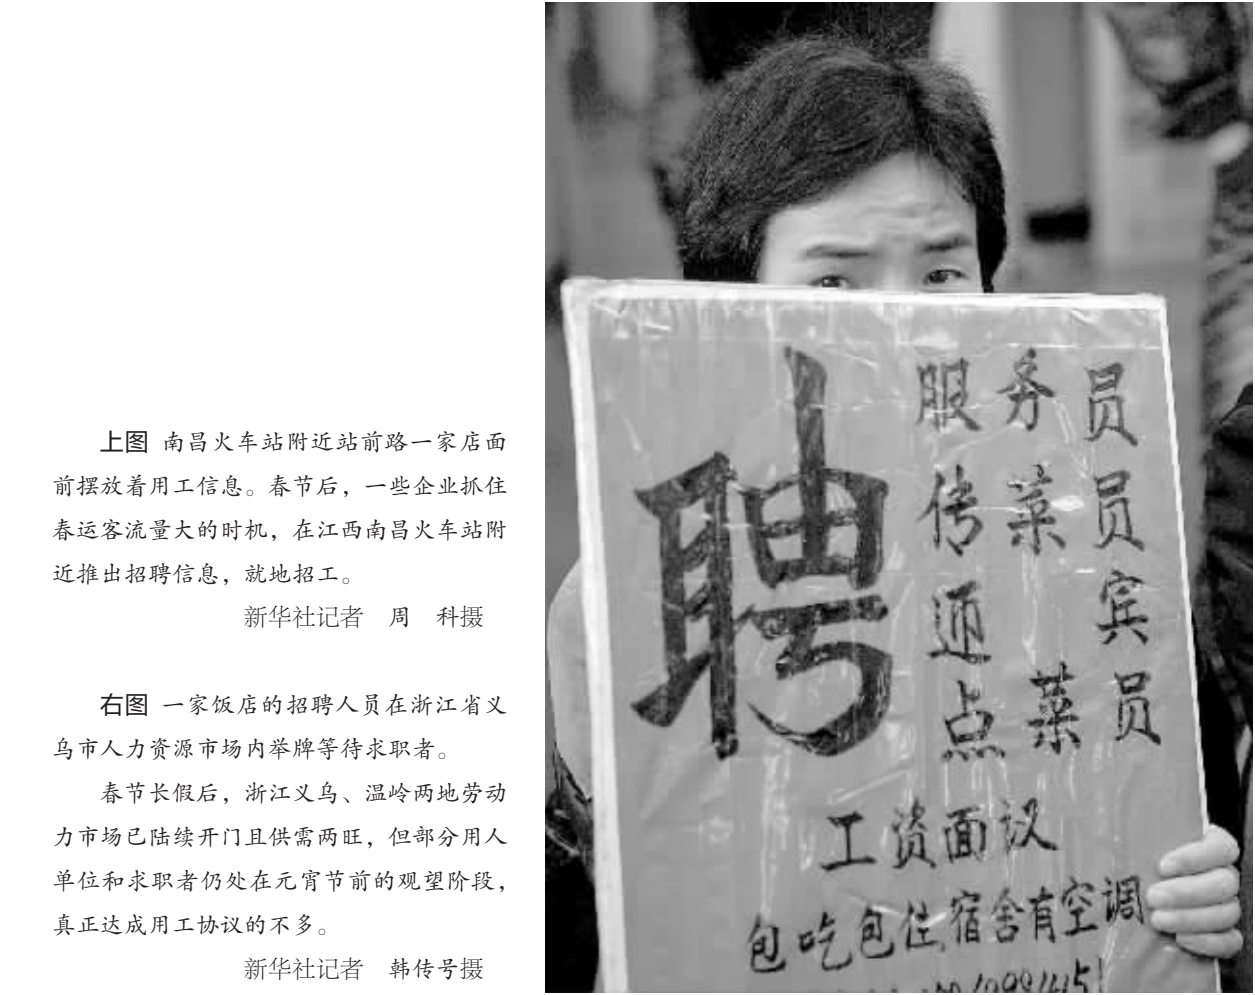 上图 南昌火车站附近站前路一家店面
前摆放着用工信息。春节后，一些企业抓住
春运客流量大的时机，在江西南昌火车站附
近推出招聘信息，就地招工。
新华社记者 周 科摄
右图 一家饭店的招聘人员在浙江省义
乌市人力资源市场内举牌等待求职者。
春节长假后，浙江义乌、温岭两地劳动
力市场已陆续开门且供需两旺，但部分用人
单位和求职者仍处在元宵节前的观望阶段，
真正达成用工协议的不多。
新华社记者 韩传号摄
聘
服务员
传菜员
迊宾
点菜员
工资面议
包吃包住宿舍有空调